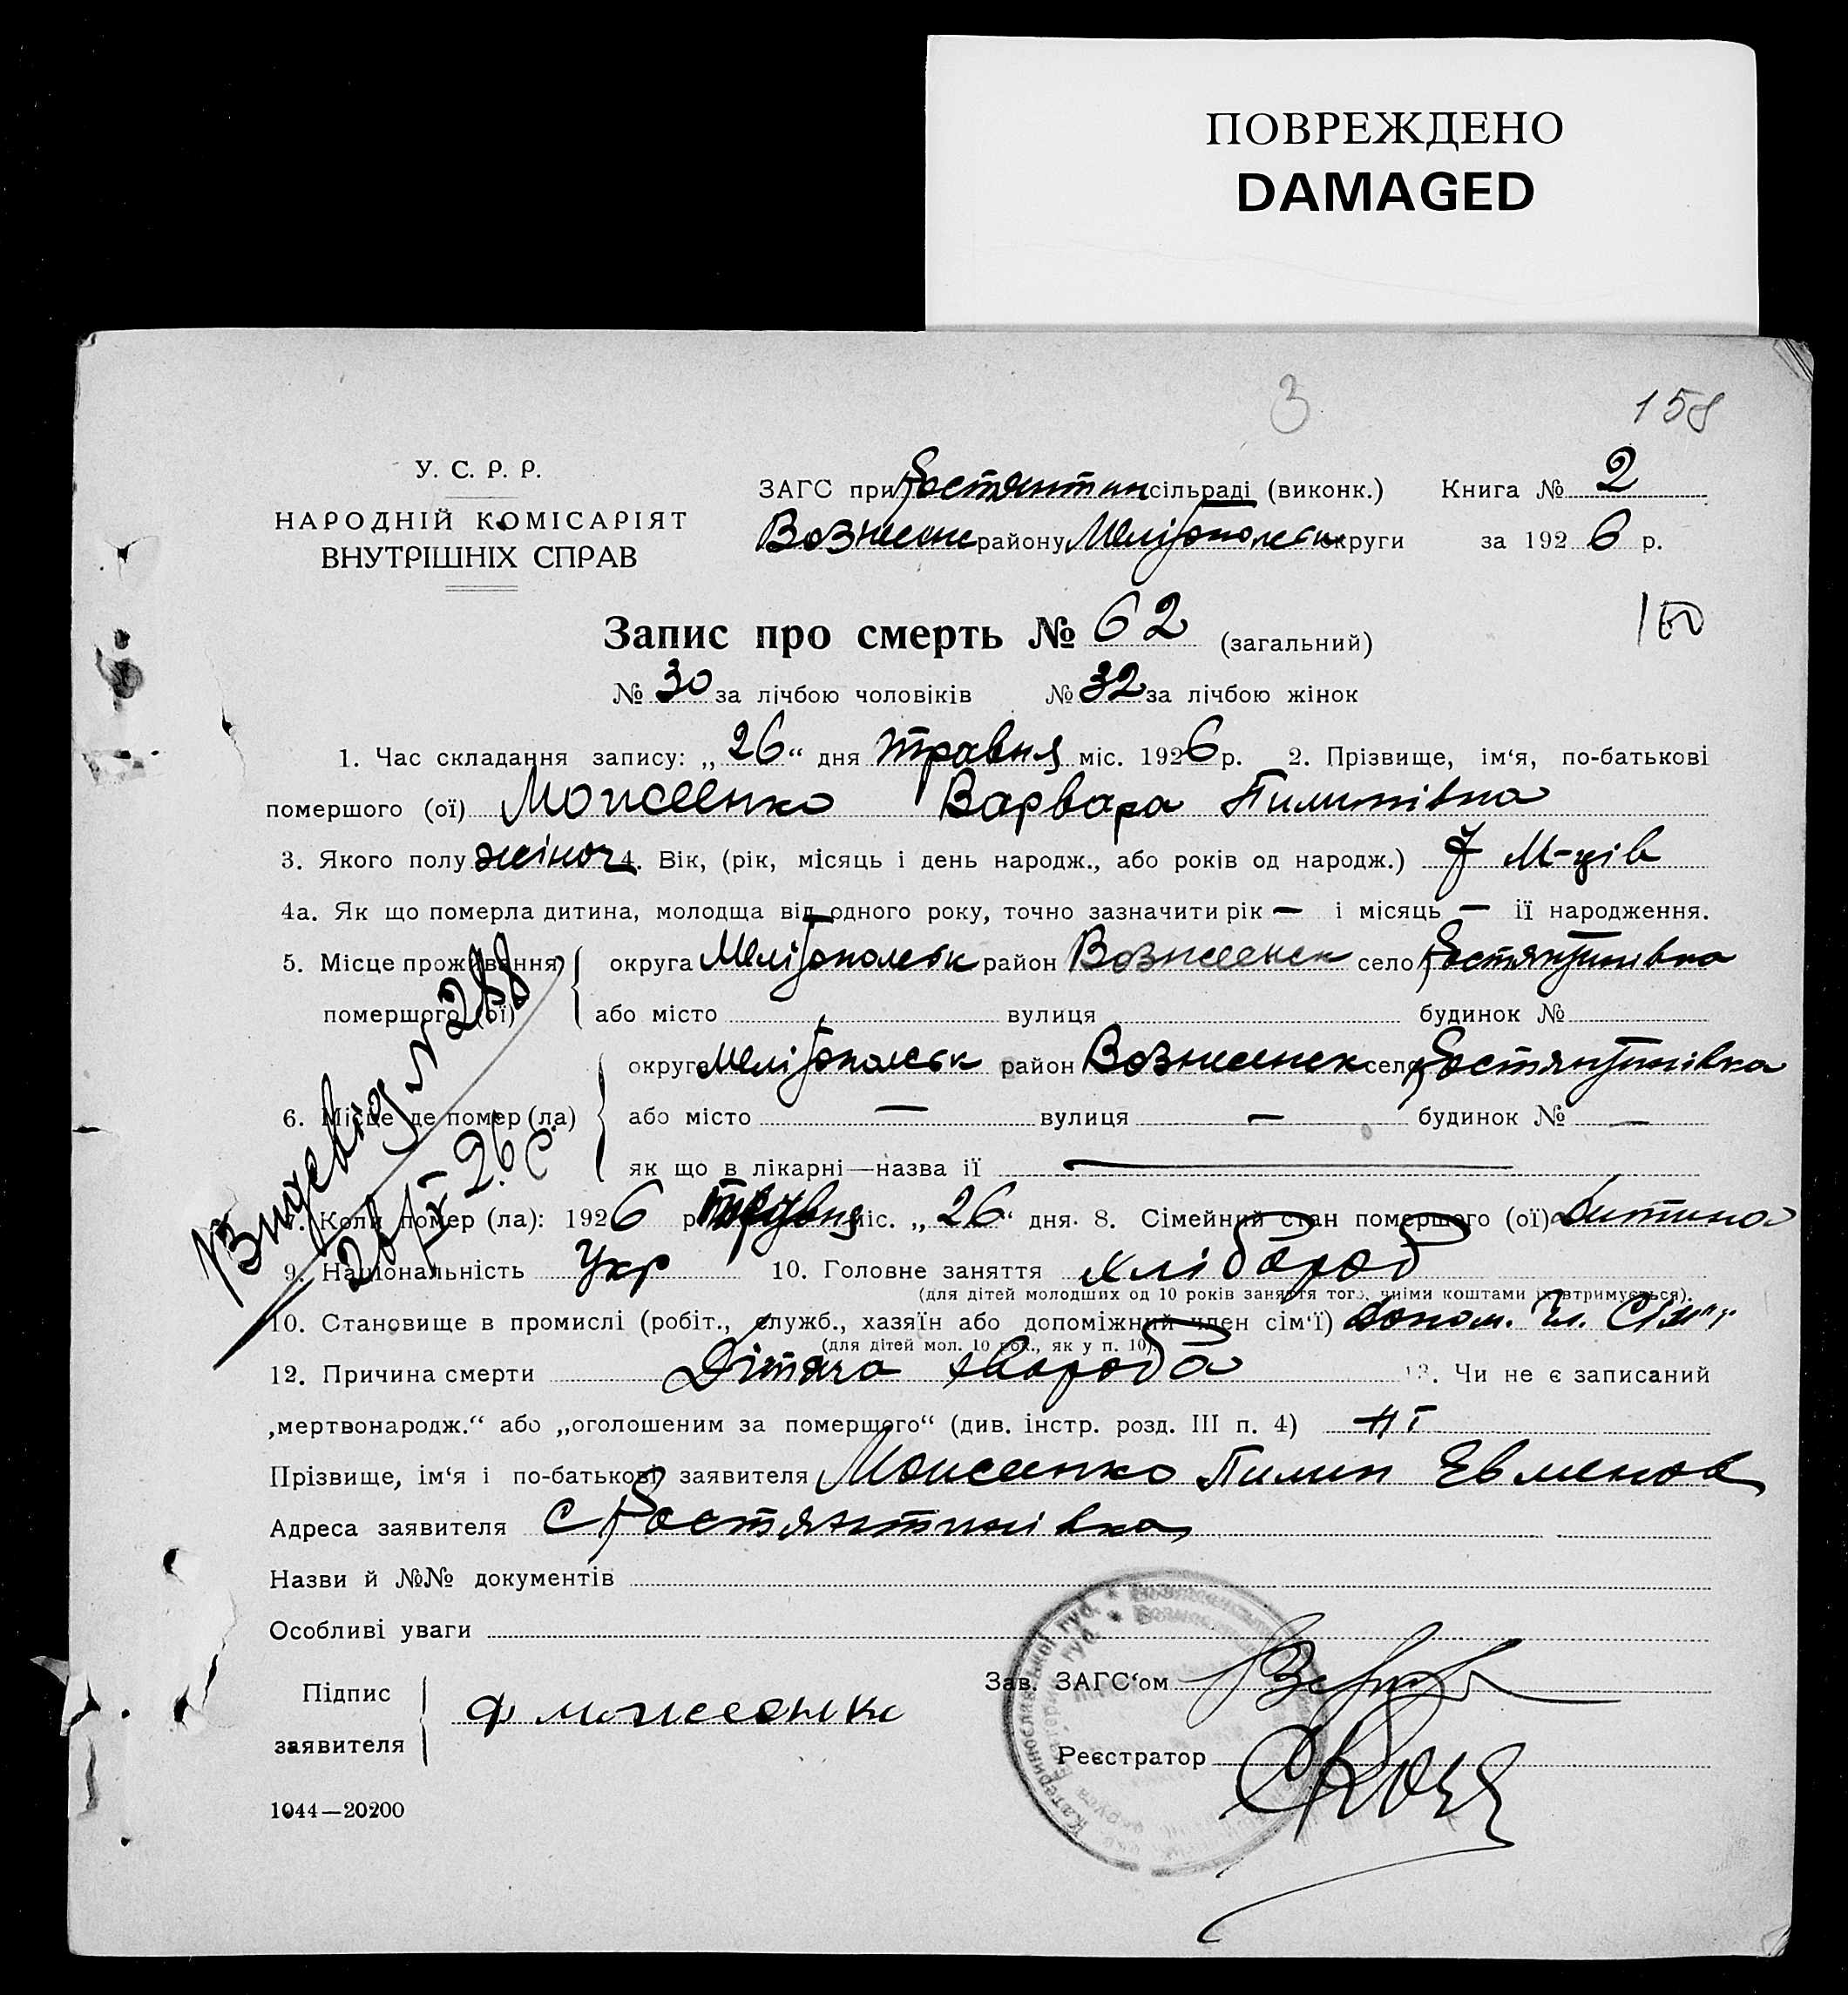 ПОВРЕЖДЕНО
DAMAGED
3
158
У. С. Р. Р.
НАРОДНІЙ КОМІСАРІЯТ
ВНУТРІШНІХ СПРАВ
ЗАГС при Костянтин сільраді (виконк.) Книга № 2
Вознесенс району Мелітопольськ округи за 1926 р.
Запис про смерть № 62 (загальний)
№ 30 за лічбою чоловіків № 32 за лічбою жінок
1. Час складання запису: „26“ дня травня міс. 1926 р. 2. Прізвище, ім‘я, по-батькові
помершого (ої) Моисеенко Варвара Пилипівна
3. Якого полу жіноч 4. Вік, (рік, місяць і день народж., або років од народж.) 7 М-ців
4а. Як що померла дитина, молодща від одного року, точно зазначити рік — і місяць — її народження.
5. Місце проживання помершого (ої)
округа Мелітопольськ район Вознесенск село Костянтинівка
або місто вулиця будинок №
6. Місце де помер (ла)
округа Мелітопольськ район Вознесенск село Костянтинівка
або місто — вулиця — будинок № —
як що в лікарні—назва її —
7. Коли помер (ла): 1926 р травня міс. „26“ дня. 8. Сімейний стан помершого (ої) Дитина
9. Національність Укр 10. Головне заняття хлібороб
(для дітей молодших од 10 років заняття того, чиїми коштами їх втримується).
10. Становище в промислі (робіт., служб., хазяїн або допоміжний член сім‘ї) Допом. Чл. Сім"ї
(для дітей мол. 10 рок., як у п. 10).
12. Причина смерти Дітяча хвороба 13. Чи не є записаний
„мертвонародж.“ або „оголошеним за померщого“ (див. інстр. розд. III п. 4) ні
Прізвище, ім‘я і по-батькові заявителя Моисеенко Пилип Евменов
Адреса заявителя С Костянтинівка
Назви й №№ документів
Особливі уваги
Підпис заявителя Ф моисеенко
Зав. ЗАГС‘ом
Реєстратор
1044—20200